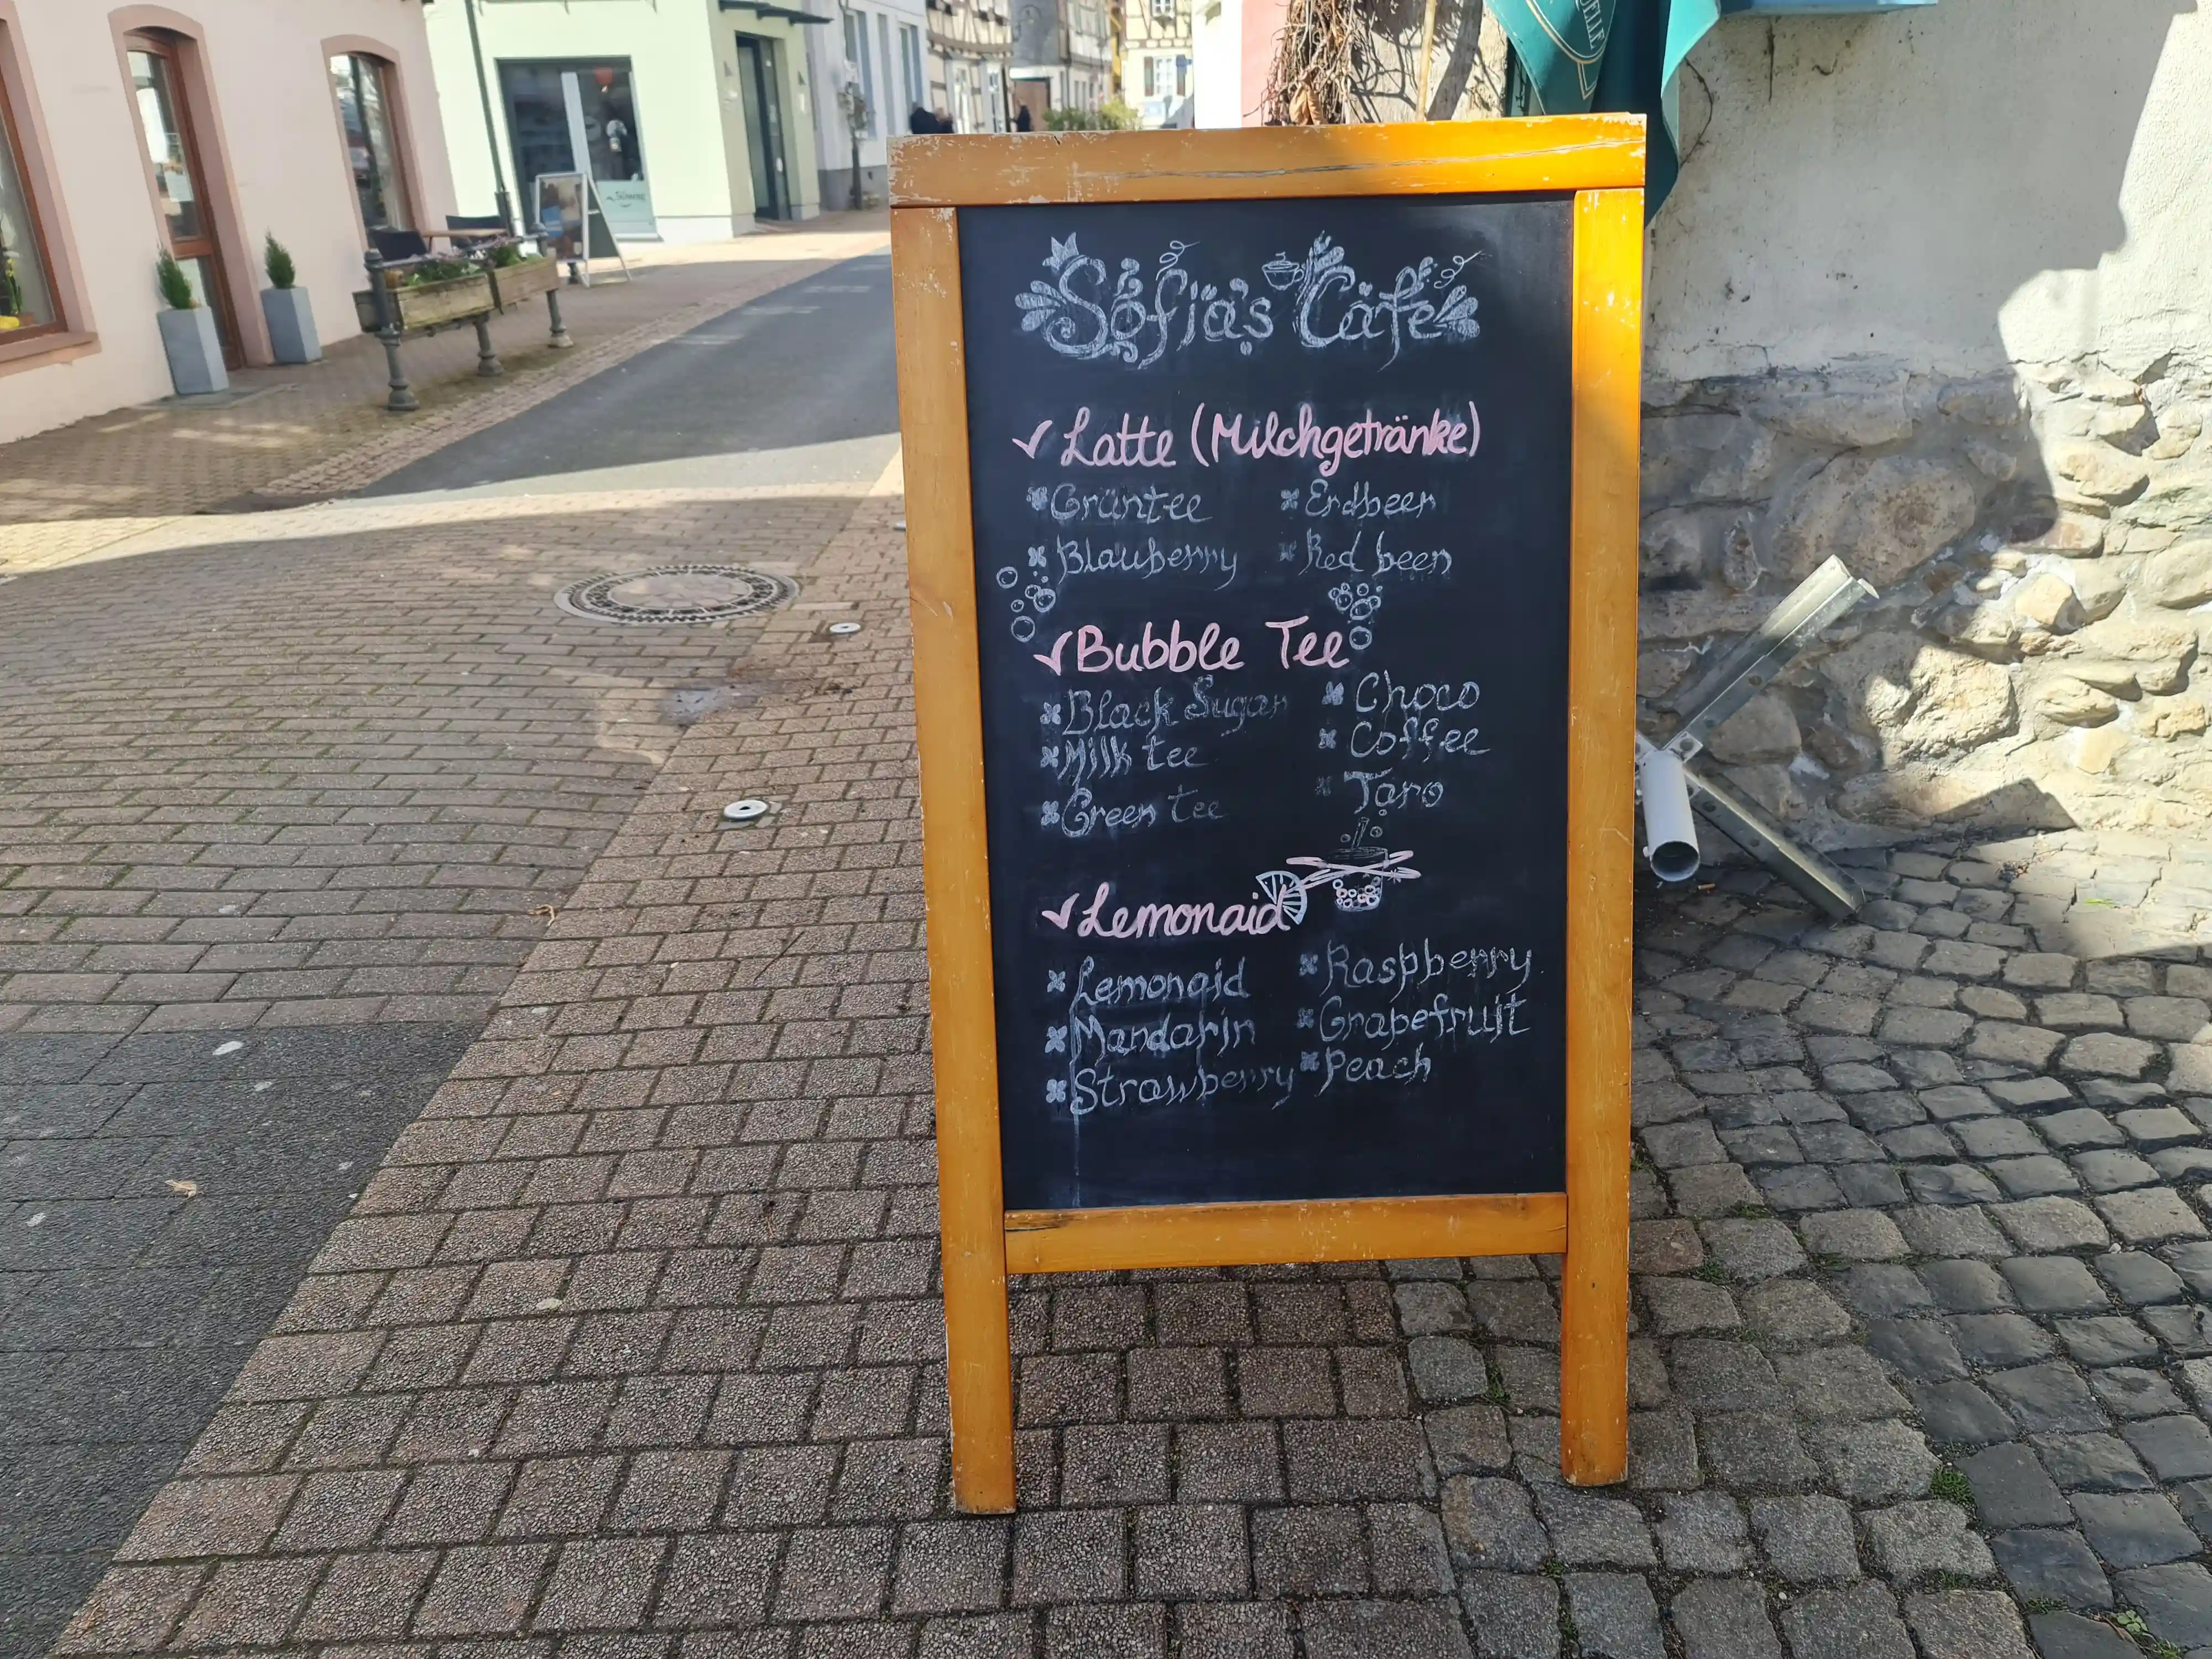 Sofia's Cafe
Latte (Milchgetränke)
Grüntee Erdbeer
Blauberry Red been
Bubble Tee
Black Sugar Choco
Milk tee Coffee
Green tee Taro
Lemonaid
Lemonaid Raspberry
Mandarin Grapefruit
Strawberry Peach